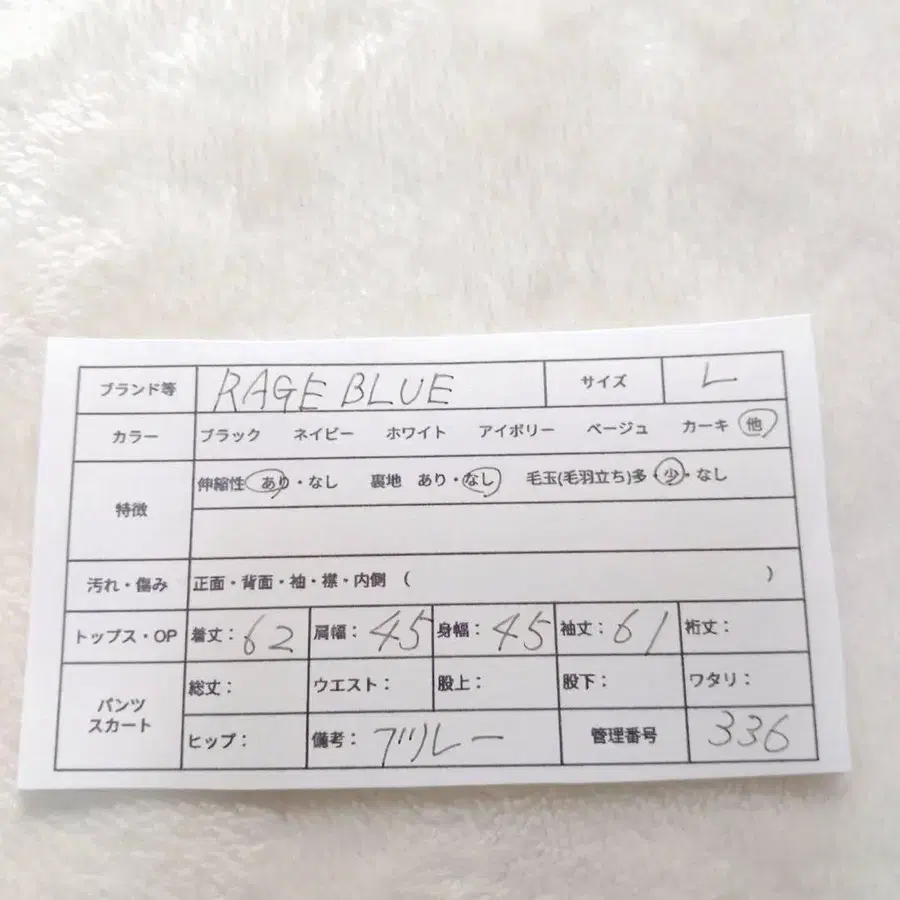 ブランド等 RAGE BLUE サイズ L
カラー ブラック ネイビー ホワイト アイボリー ベージュ カーキ 他
特徴 伸縮性 あり・なし 裏地 あり・なし 毛玉(毛羽立ち)多・少・なし
汚れ・傷み 正面・背面・袖・襟・内側 ( )
トップス・OP 着丈: 62 肩幅: 45 身幅: 45 袖丈: 61 裄丈:
パンツ スカート 総丈: ウエスト: 股上: 股下: ワタリ:
ヒップ: 備考: グレー 管理番号 336